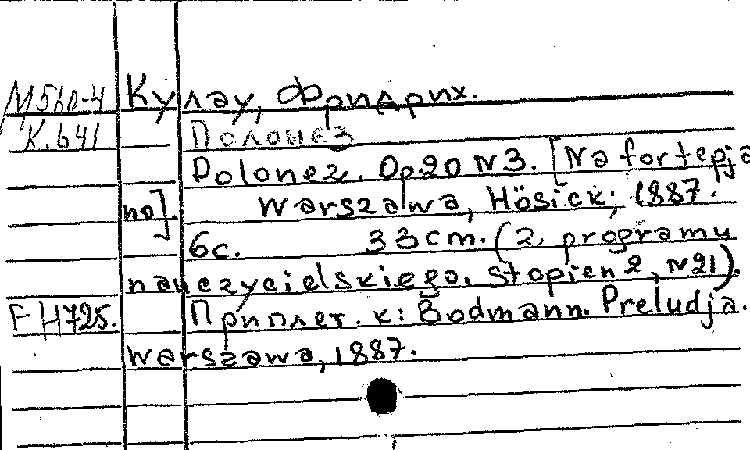 М5бп-4 Кулау, Фридрих.
К.641 Полонез
Polonez. Op.20 N3. [Na fortepja
no]. Warszawa, Hösick, 1887.
6с. 33cm. (Z programu
nauczycielskiego. Stopien 2, N21).
FH725. Приплет. к: Bodmann. Preludja.
Warszawa, 1887.